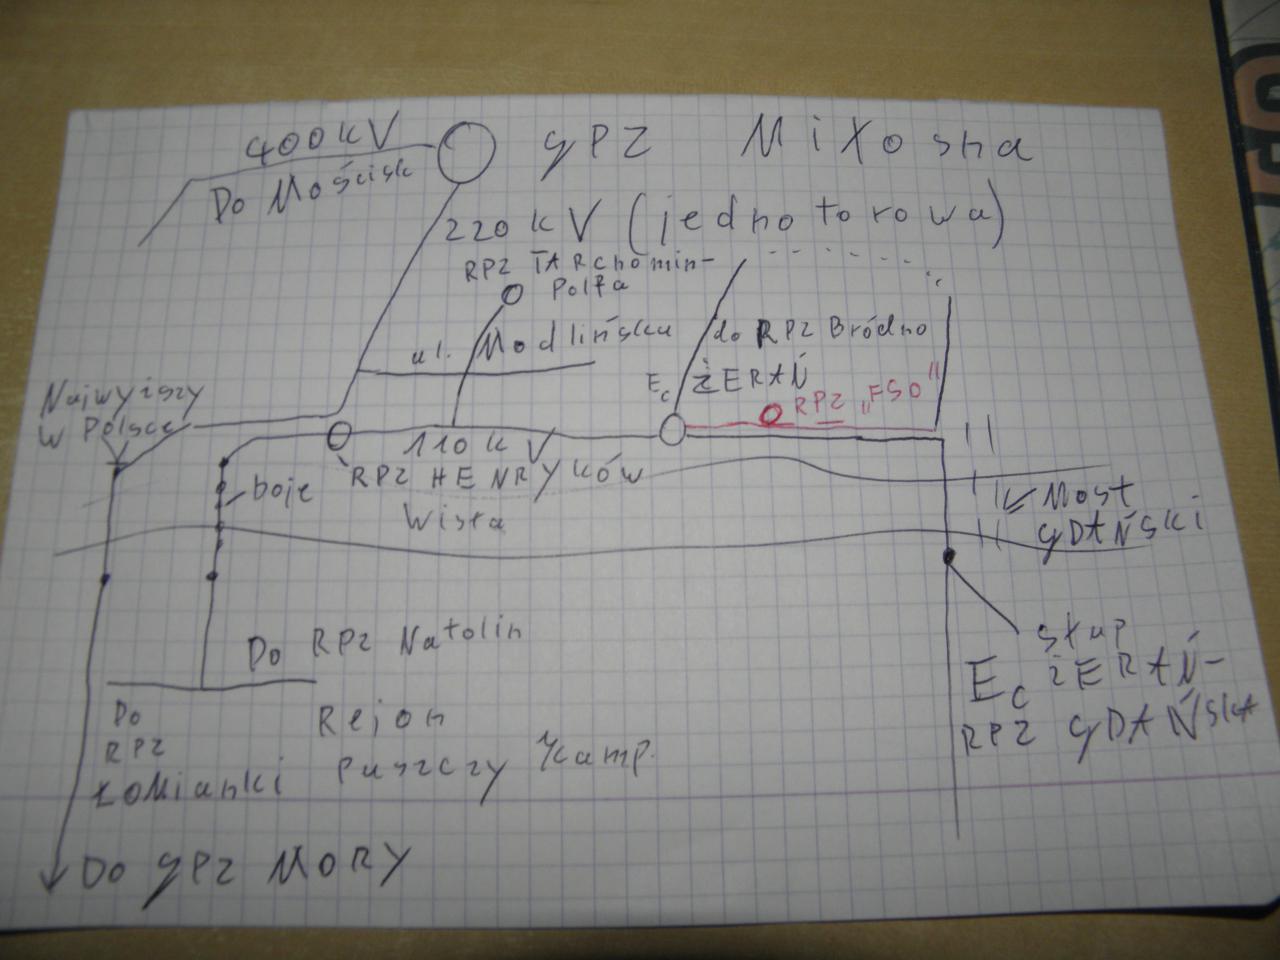 400 kV
GPZ Miłosna
Do Mościsk
220 kV (jednotorowa)
RPZ TARchomin-
Polfa
ul. Modlińska
do RPZ Bródno
Ec ŻERAŃ
RPZ „FSO"
Najwyższy
w Polsce
110 kV
RPZ HENRYKÓW
boje
Wisła
Most
GDAŃSKI
Do RPZ Natolin
słup
Ec ŻERAŃ-
RPZ GDAŃSKA
Do
RPZ
ŁOMianki
Rejon
Puszczy Kamp.
Do GPZ MORY